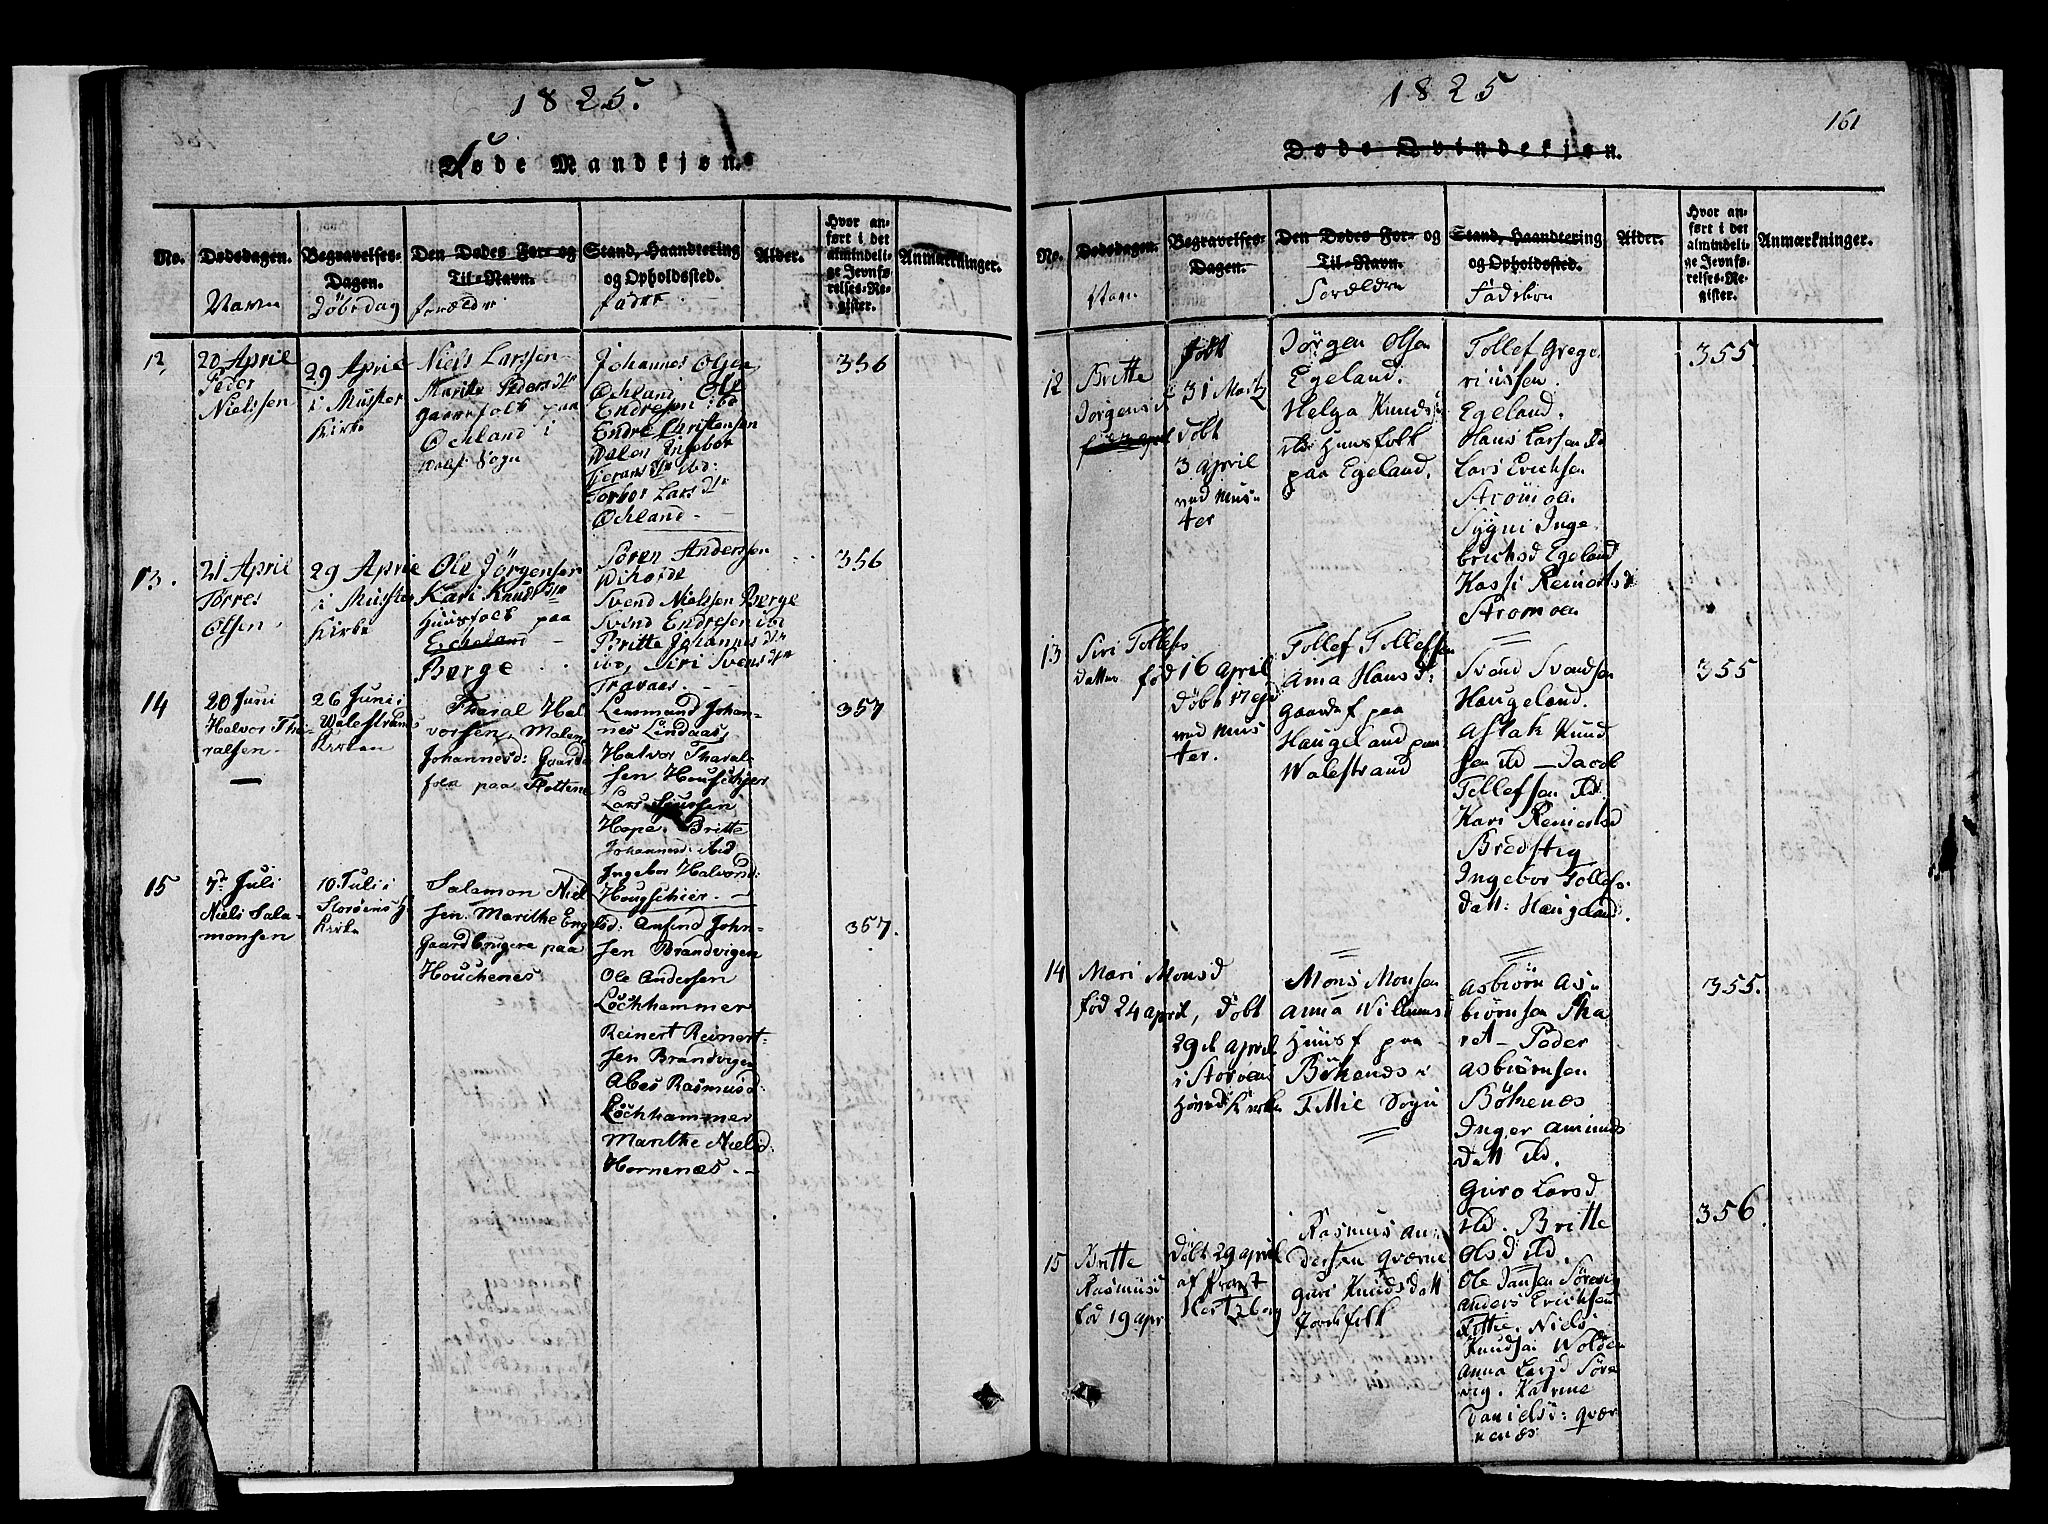 1825.
Døde Mandkjøn.
No.
Dødsdagen.
Navn
Begravelses-
Dagen.
Döbsdag
Den Dødes For- og
Til-Navn.
forældre
Stand, Haandtering
og Opholdssted.
fadre
Alder.
Hvor an-
ført i det
almindeli-
ge Jevnfø-
relses-Re-
gister.
Anmærkninger.
12,
20 April
Peder
Nielssen
29 April
i Muster
Kirke
Niels Larssen
Marite Pedersdtr
Gaardfolk paa
Öchland i
Sogn
Johannes Olsen
Öchland Ole
Endresen ibd
Endre Christensen
Dalen Ingebor
Torbor Larsdtr
Öchland
356
13.
21 April
Törres
Olsen
29 April
i Muster
Kirke
Ole Jörgensen
Kari Knudsdtr
Huusfolk paa
Echeland
Berge
Sören Anderssen
Svend Nielssen Berge
Svend Endresen ibd
Britte Johannesdtr
ibd, Siri Svensdtr
Travaas
356
14
20 Juni
Halvor Tha-
ralsen
26 Juni i
Walestrands
Kirken
Tharal Hal-
vorsen, Malene
Johannesd: Gaard-
folk paa Flottene
Lemmand Johan-
nes Lindaas
Halvor Tharal-
sen Hougschier
Lars Sjursen
Hope. Britte
Johannesd: ibid
Ingebor Halvord:
Hougschier.
357
15
7de Juli
Niels Sala-
monsen
10 Juli i
Storöens
Kirke
Salamon Niel-
sen. Marithe Eng-
Gaardbrugere paa
Houchenes
Amund John-
sen Brandvigen
Ole Andersen
Löchhammer
Reinert Reinert-
sen Brandvigen
Abes Rasmusd:
Löchhammer
Marithe Nielsd:
Hornenæs.
357.
1825
161
Døde Qvindekjøn.
No.
Dødsdagen.
Navn
Begravelses-
Dagen.
Den Dødes For- og
Til-Navn.
Forældre
Stand, Haandtering
og Opholdssted.
Faddere
Alder.
Hvor an-
ført i det
almindeli-
ge Jevnfø-
relses-Re-
gister.
Anmærkninger.
12
Britte
Jörgensd
födt
31 Martz
döbt
3 april
ved Mus-
ter
Jörgen Olsen
Egeland.
Helga Knuds-
dtr Huusfolk
paa Egeland.
Tollef Grego-
riussen.
Egeland.
Hans Larsen ibd
Lars Erichsen
Strömoen
Sygni Inge-
brichsd Egeland
Kassi Reinertsd
Stromoen
355
13
Siri Tollefs
datter
föd 16 april
döbt 17 ejd
ved Mus-
ter.
Tollef Tollefsen
Anna Hansd:
Gaardf paa
Haugeland paa
Walestrand
Svend Svendsen
Haugeland.
Aslak Knud
sen ibd - Jacob
Tollefsen ibd
Kari Reinertsd
Bredstig
Ingebor Tollefs
datt: Haugeland.
355
14
Mari Monsd
föd 24 april, döbt
29d april
i Storöens
Hoved Kirken
Mons Monsen
Anna Willumsd
Huusf paa
Bökenæs i
Fittie Sogn
Asbiörn As-
biörnsen Tha
ret - Peder
Asbiörnsen
Bökenæs
Inger Amunds
datt ibd.
Guro Larsd
ibd. Britte
Olsd ibd.
355.
15
Britte
Rasmusd
föd 19 apr
döbt 29 april
af Provst
Hertzberg
Rasmus An-
dersen Qværne
Guri Knudsdatt
Jordfolk
Ole Jansen Sörevig
Anders Erichsen
Fittie. Niels
Knudsen Wolden
Anna Larsd Söre
vig. Katrine
Danielsd: Qvær
nenæs
356.